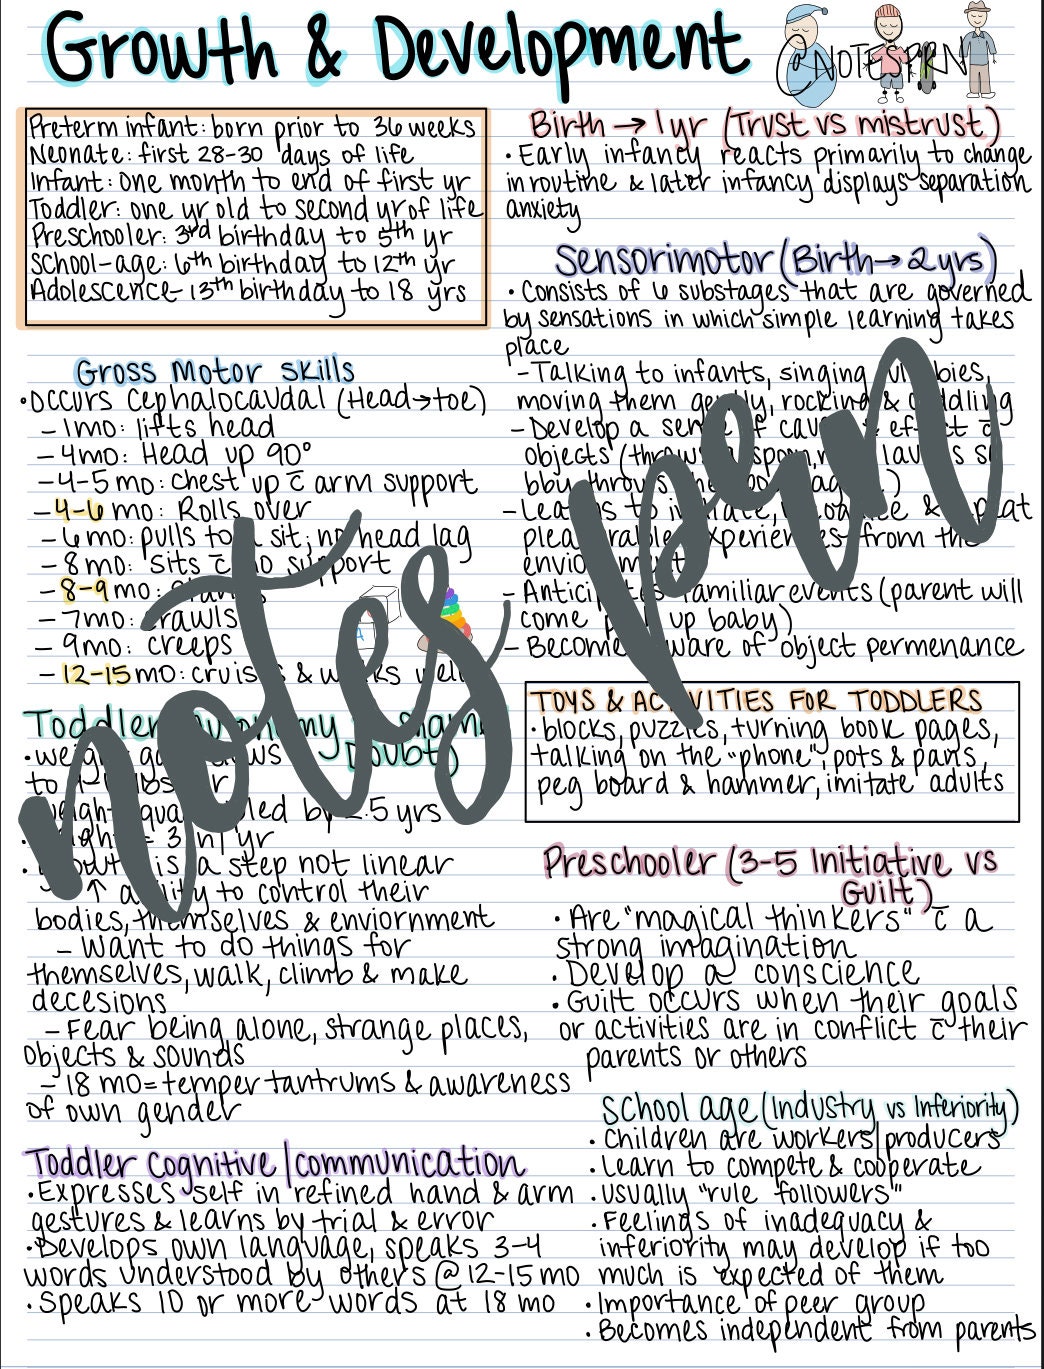 Growth & Development
@NOTESPRN
Preterm infant: born prior to 36 weeks
Neonate: first 28-30 days of life
Infant: One month to end of first yr
Toddler: one yr old to second yr of life
Preschooler: 3rd birthday to 5th yr
School-age: 6th birthday to 12th yr
Adolescence- 13th birthday to 18 yrs
Gross Motor Skills
• Occurs cephalocaudal (Head→toe)
- 1mo: lifts head
- 4mo: Head up 90°
- 4-5 mo: chest up c̄ arm support
- 4-6 mo: Rolls over
- 6 mo: pulls to a sit; no head lag
- 8 mo: sits c̄ no support
- 8-9 mo:
- 7mo: crawls
- 9mo: creeps
- 12-15 mo: cruises & walks well
Toddler Autonomy vs Shame
Doubt)
•
to
by 2.5 yrs
• 3in/yr
• is a step not linear
- ↑ ability to control their
bodies, themselves & enviornment
- Want to do things for
themselves, walk, climb & make
decesions
- Fear being alone, strange places,
objects & sounds
- 18 mo= temper tantrums & awareness
of own gender
Toddler Cognitive/communication
• Expresses self in refined hand & arm
gestures & learns by trial & error
• Develops own language, speaks 3-4
words understood by others @ 12-15 mo
• Speaks 10 or more words at 18 mo
Birth → 1yr (Trust vs mistrust)
• Early infancy reacts primarily to change
in routine & later infancy displays separation
anxiety
Sensorimotor (Birth→2yrs)
• Consists of 6 substages that are governed
by sensations in which simple learning takes
place
- Talking to infants, singing
moving them gently, rocking & cuddling
- Develop a sense of cause & effect c̄
objects
bby throws
- Learns to imitate, & repeat
pleasurable experiences from the
enviornment
- Anticipates familiar events (parent will
come pick up baby)
- Becomes aware of object permenance
TOYS & ACTIVITIES FOR TODDLERS
• blocks, puzzles, turning book pages,
talking on the "phone", pots & pans,
peg board & hammer, imitate adults
Preschooler (3-5 Initiative vs
Guilt)
• Are "magical thinkers" c̄ a
strong imagination
• Develop a conscience
• Guilt occurs when their goals
or activities are in conflict c̄ their
parents or others
School age (Industry vs Inferiority)
• Children are workers/producers
• Learn to compete & cooperate
• Usually "rule followers"
• Feelings of inadequacy &
inferiority may develop if too
much is expected of them
• Importance of peer group
• Becomes independent from parents
notes prn